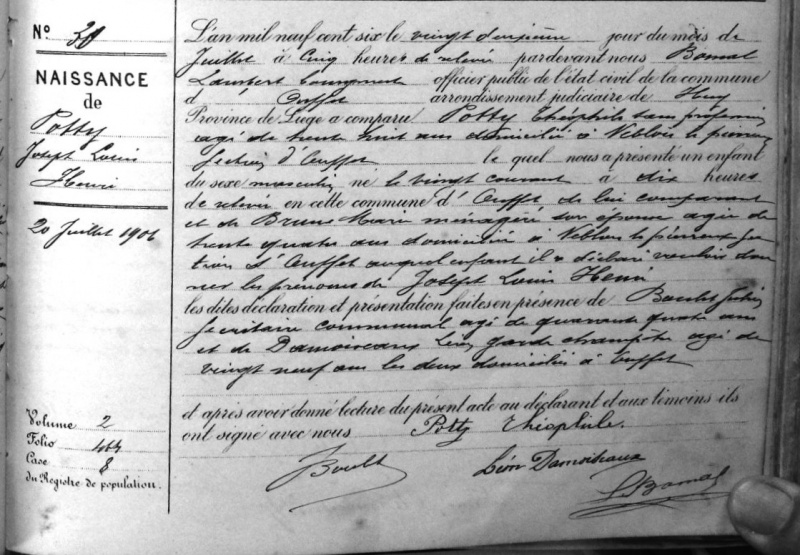 N° 39
NAISSANCE
de
Potty
Joseph Louis
Henri
20 Juillet 1906
Volume 2
Folio
Case 8
du Registre de population.
L'an mil neuf cent six le vingt jour du mois de
Juillet à Cinq heures de relevée pardevant nous Bomal
Lambert officier public de l'état civil de la commune
d' Ouffet arrondissement judiciaire de Huy
Province de Liège a comparu Potty Théophile sans profession
agé de trente huit ans domicilié à
section d'Ouffet le quel nous a présenté un enfant
du sexe masculin né le vingt courant à dix heures
de relevée en cette commune d' Ouffet de lui comparant
et de Marie ménagère son épouse agée de
trente quatre ans domiciliée à sec
tion d'Ouffet auquel enfant il a déclaré vouloir don
ner les prénoms de Joseph Louis Henri
les dites déclaration et présentation faites en présence de
secrétaire communal agé de quarante quatre ans
et de Damoiseaux Léon garde champêtre agé de
vingt neuf ans les deux domiciliés à Ouffet
et après avoir donné lecture du présent acte au déclarant et aux témoins ils
ont signé avec nous Potty Théophile.
Léon Damoiseaux
L Bomal